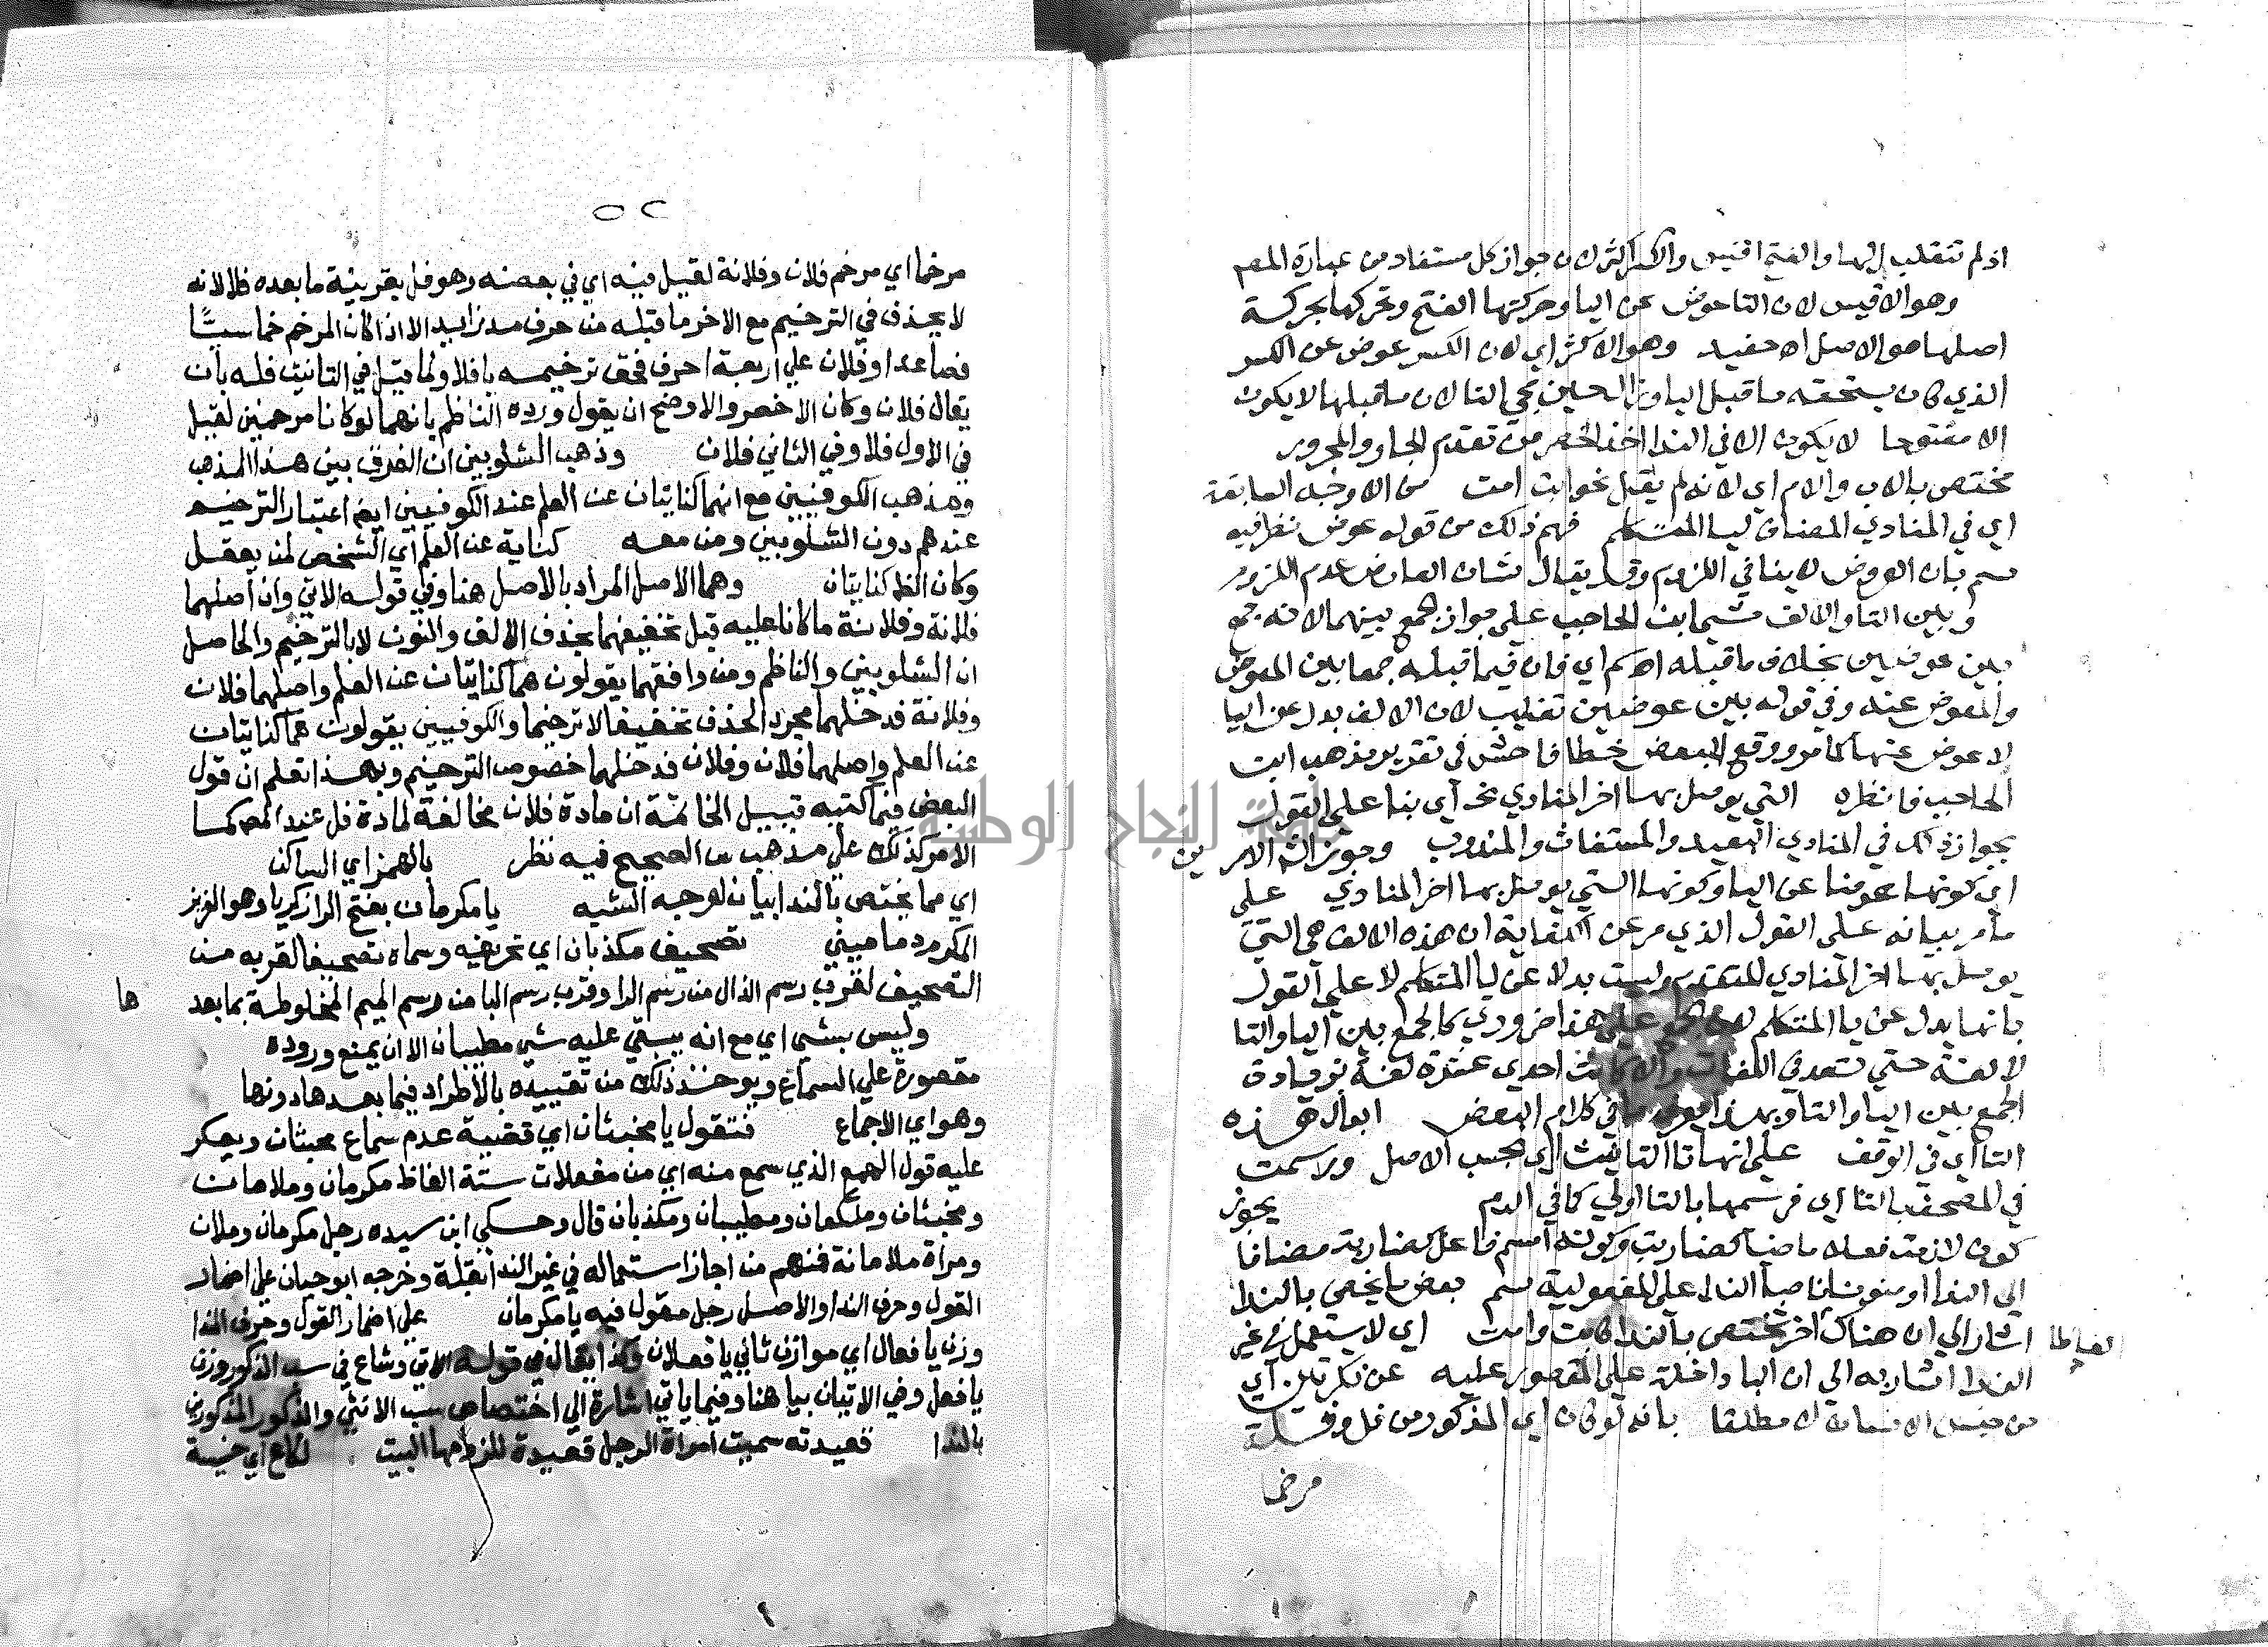 اذ لم تنقلب اليها والفتح اقيس والكسر اكثر لان جواز كل مستفاد من عبارة المصم
وهو الاقيس لان التا عوض عن اليا وحركتها الفتح وتحركها بحركة
اصلها هو الاصل اه حفيد وهو الاكثر اي لان الكسر عوض عن الكسر
الذي كان يستحقه ما قبل اليا وزال حين مجي التا لان ما قبلها لا يكون
الا مفتوحا لا يكون الا في الندا اخذ الحصر من تقديم الجار والمجرور
مختص بالاب والام اي لانه لم يقل نحو ابت امت من الاوجه السابقة
اي في المنادي المضاف ليا المتكلم فهم ذلك من قوله عوض نظر فيه
سم بان العوض لا ينافي اللزوم وقد يقال شان العارض عدم اللزوم
وبين التا والالف مشي ابن الحاجب علي جواز الجمع بينهما لانه جمع
بين عوضين بخلاف ما قبله اهـ سم اي فان فيما قبله جمعا بين العوض
والمعوض عنه وفي قوله بين عوضين تغليب لان الالف بدل عن اليا
لا عوض عنها كما مر ووقع للبعض خطا فاحش في تقرير مذهب ابن
الحاجب فانظره التي يوصل بها اخر المنادي نحو اي بنا علي القول
بجواز ذلك في المنادي البعيد والمستغاث والمندوب وجوز الشم الامرين
اي كونها عوضا عن اليا وكونها التي يوصل بها اخر المنادي علي
ما مر بيانه علي القول الذي مر عن الكفاية ان هذه الالف هي التي
يوصل بها اخر المنادي المتقدم وليست بدلا عن يا المتكلم لا علي القول
بانها بدل عن يا المتكلم علي هذا ضروري كالجمع بين اليا والتا
لا لغة حتي تعد في اللغات والا كانت احدي عشرة لغة نوقيادق
الجمع بين اليا والتا وبهذا يعرف ما في كلام البعض ابدال هذه
التا اي في الوقف علي انها تا التانيث اي بحسب الاصل ورسمت
في المصحف بالتا اي فرسمها بالتا اولي كما في الدم يجوز
كون لازمت فعلا ماضيا كضاربت وكونه اسم فاعل كضاربة مضافا
الي الندا او منونا ناصبا الندا علي المفعولية سم بعض ما يخص بالندا
اشار الي ان هناك اخر تختص بالندا كابت وامت اي لا يستعمل في غير
الفاظا
الندا اشار به الي ان البا داخلة علي المقصور عليه عن نكرتين اي
من جنس الانسان لا مطلقا بانه لو كان اي المذكور من فل وفلة
مرخما
٥٢
مرخما اي مرخم فلان وفلانة لقيل فيه اي في بعضه وهو فل بقرينة ما بعده فلا لانه
لا يحذف في الترخيم مع الاخر ما قبله من حرف مد زايد الا اذا كان المرخم خماسيا
فصاعدا وفلان علي اربعة احرف فحق ترخيمه يا فلا ولما قيل في التانيث فله بان
يقال فلان وكان الاخصر والاوضح ان يقول ورده الناظم بانهما لو كانا مرخمين لقيل
في الاول فلا وفي الثاني فلان وذهب الشلوبين ان الفرق بين هذا المذهب
ومذهب الكوفيين مع انهما كنايتان عن العلم عند الكوفيين ايضا اعتبار الترخيم
عندهم دون الشلوبين ومن معه كناية عن العلم اي الشخص لمن يعقل
وكان الظ كنايتان وهما الاصل المراد بالاصل هنا وفي قوله الاتي وان اصلهما
فلانة وفلانة ما كانا عليه قبل تخفيفهما بحذف الالف والنون لا بالترخيم والحاصل
ان الشلوبين والناظم ومن وافقهما يقولون هما كنايتان عن العلم واصلهما فلان
وفلانة فدخلهما مجرد الحذف تخفيفا لا ترخيما والكوفيين يقولون هما كنايتان
عن العلم واصلهما فلان وفلان فدخلهما خصوص الترخيم وبهذا تعلم ان قول
البعض فيما كتبه قبيل الخاتمة ان مادة فلان مخالفة لمادة فل عند المص كما
الامر كذلك علي مذهب س الصحيح فيه نظر بالهمز اي الساكن
اي مما يختص بالندا بيان لوجه الشبه يا مكرمان بفتح الرا زكريا وهو العزيز
المكرم دماميني تصحيف مكذبان اي تحريفه وسماه تصحيفا لقربه من
التصحيف لقرب رسم الذال من رسم الرا وقرب رسم البا من رسم الميم المخلوطة بما بعد
ها
وليس بشي اي مع انه يبقي عليه شي مطيبان الا ان يمنع وروده
مقصورة علي السماع ويوخذ ذلك من تقييده بالاطراد فيما بعدها دونها
وهو اي الاجماع فتقول يا مخبثان اي قضية عدم سماع مخبثان ويعكر
عليه قول الهمع الذي سمع منه اي من مفعلان ستة الفاظ مكرمان وملامان
ومخبثان وملكعان ومطيبان ومكذبان قال وحكي ابن سيده رجل مكرمان وملامان
ومراة ملامانة فمنهم من اجاز استعماله في غير الندا بقلة وخرجه ابو حيان علي اضمار
القول وحرف الندا والاصل رجل مقول فيه يا مكرمان علي اضمار القول وحرف الندا
وزن يا فعال اي موازن ثاني يا فعلان وكذا يقال في قوله الاتي وشاع في سب الذكور وزن
يا فعل وفي الاتيان بيا هنا وفيما ياتي اشارة الي اختصاص سب الانثي والذكور المذكورين
بالندا قعيدته سميت امراة الرجل قعيدة للزومها البيت لكاع اي خبيثة